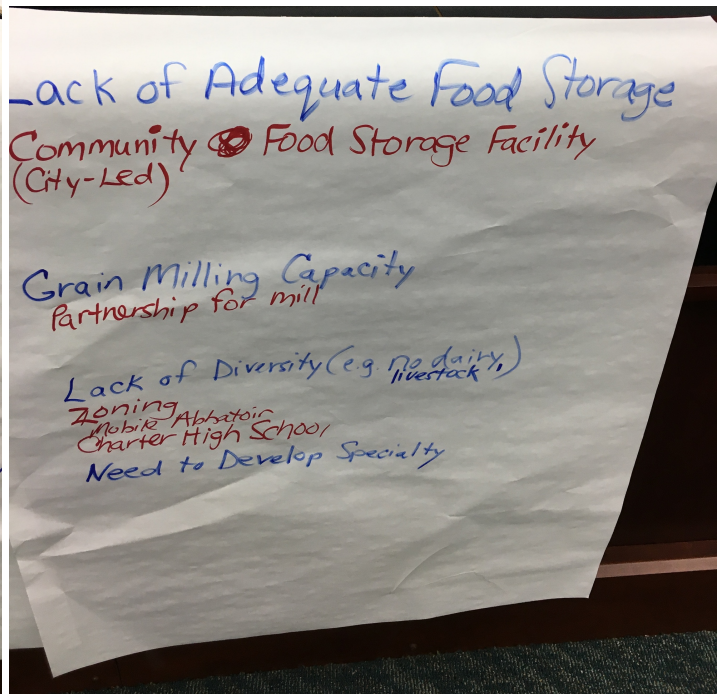 Lack of Adequate Food Storage
Community Food Storage Facility
(City-Led)
Grain Milling Capacity
Partnership for mill
Lack of Diversity (e.g. no dairy,
livestock)
Zoning
Mobile Abbatoir
Charter High School
Need to Develop Specialty